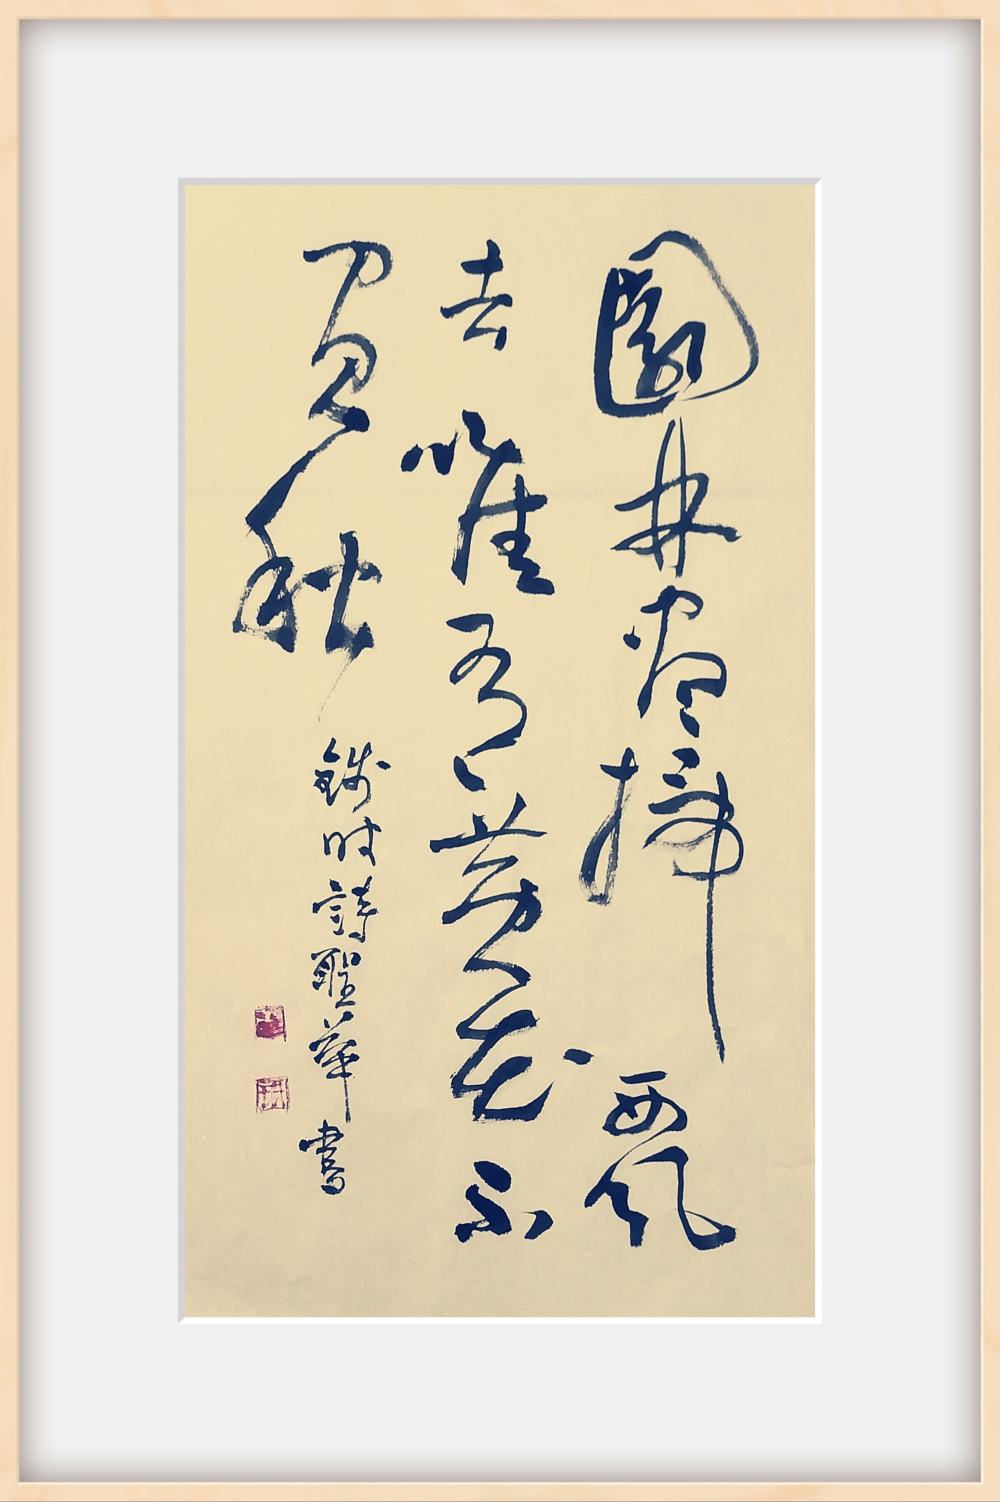 園林盡掃西風
去唯有黄花不
負秋
錢時詩聖華書